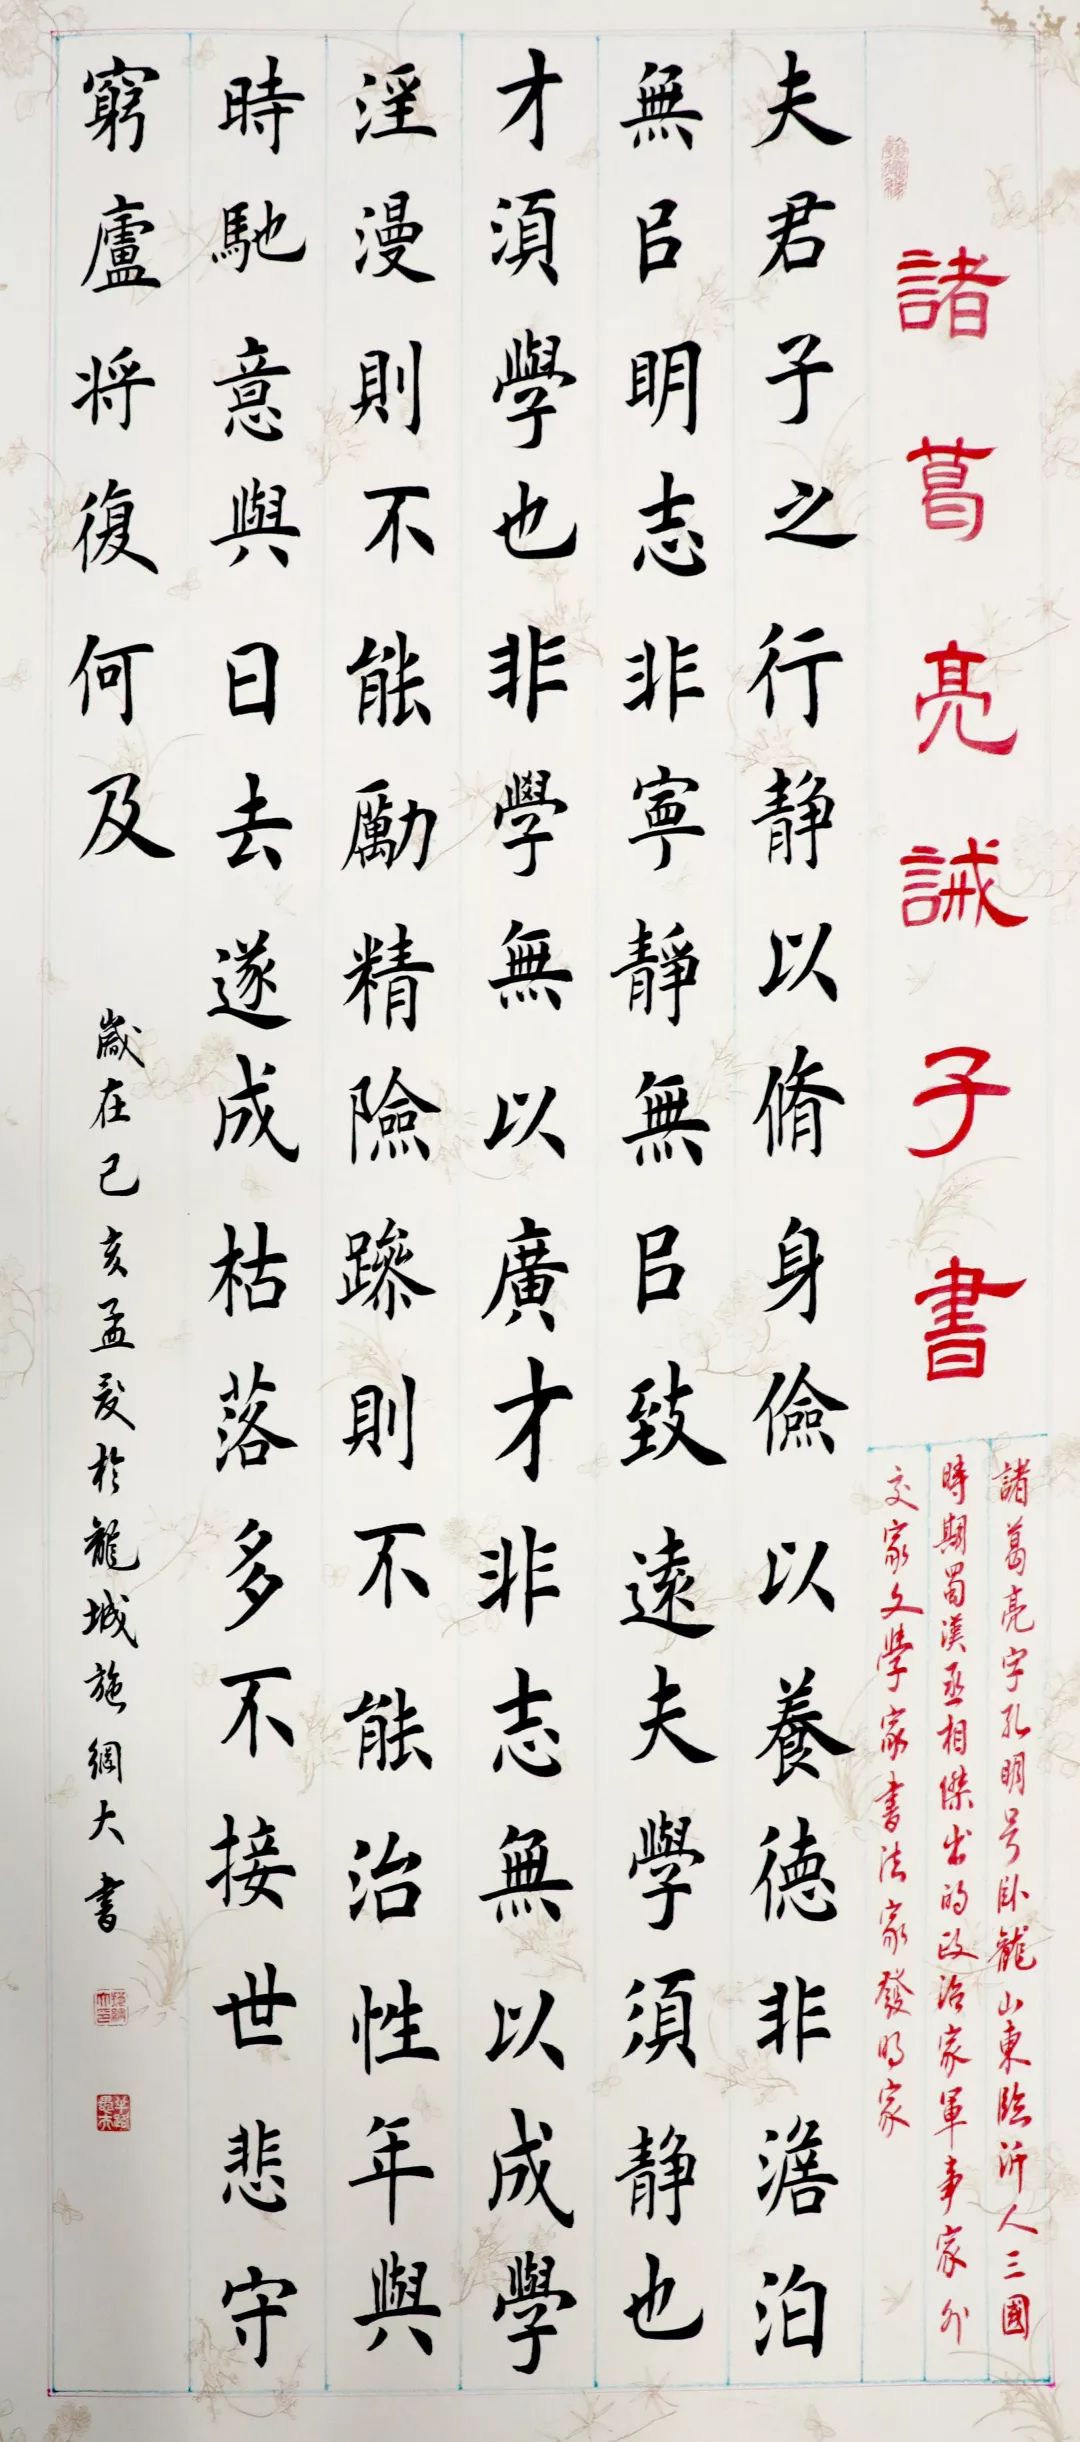 諸葛亮誡子書
諸葛亮字孔明号卧龍山東臨沂人三國
時期蜀漢丞相傑出的政治家軍事家外
交家文學家書法家發明家
夫君子之行静以脩身儉以養德非澹泊
無㠯明志非寧靜無㠯致遠夫學須静也
才湏學也非學無以廣才非志無以成學
淫漫則不能勵精險躁則不能治性年與
時馳意與日去遂成枯落多不接世悲守
窮廬将復何及
歲在己亥孟夏於龍城施綱大書